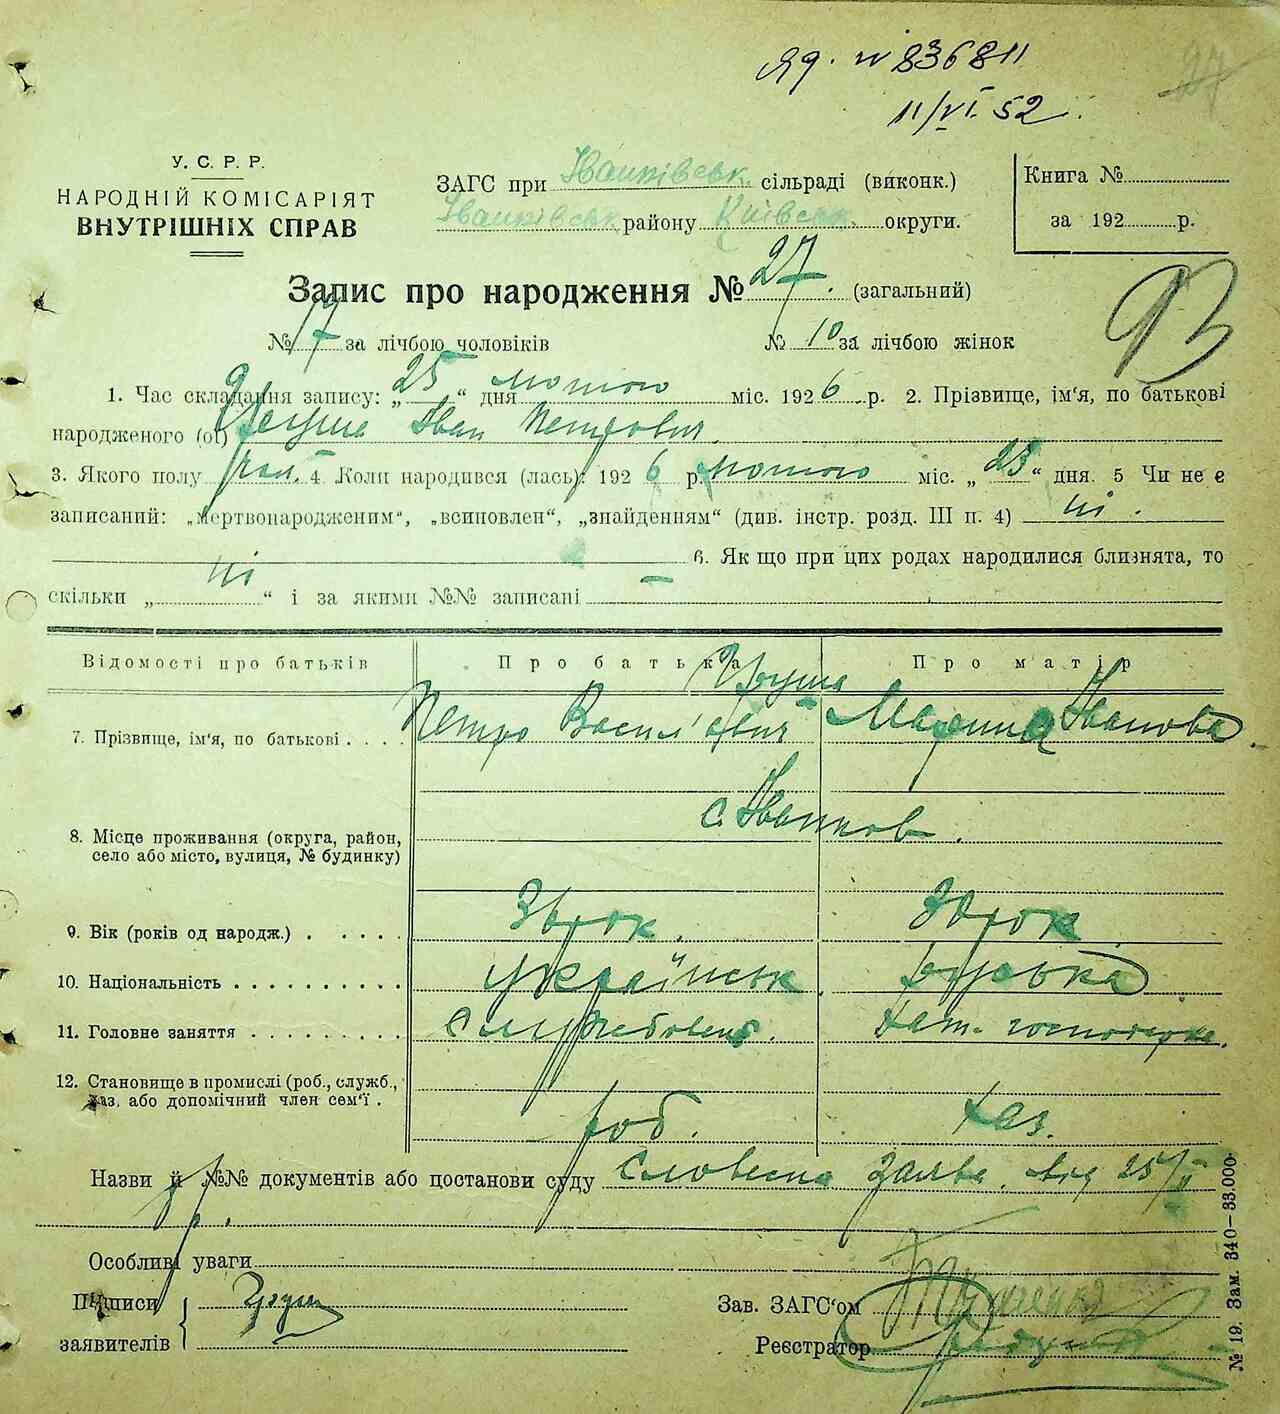 № 836811
11/VI. 52
У. С. Р. Р.
НАРОДНІЙ КОМІСАРІЯТ
ВНУТРІШНІХ СПРАВ
ЗАГС при Іванківськ. сільраді (виконк.)
Іванківськ району Київськ. округи.
Книга №
за 192 р.
Запис про народження № 27. (загальний)
№ 17 за лічбою чоловіків № 10 за лічбою жінок
93
1. Час складання запису: „25“ дня лютого міс. 1926 р. 2. Прізвище, ім'я, по батькові
народженого (ої) Груша Іван Петрович.
3. Якого полу чол. 4. Коли народився (лась): 1926 р. лютого міс. „23“ дня. 5 Чи не є
записаний: „мертвонародженим“, „всиновлен“, „знайденням“ (див. інстр. розд. III п. 4) ні.
6. Як що при цих родах народилися близнята, то
скільки „ ні “ і за якими №№ записані —
Відомості про батьків Про батька Про матір
Груша
7. Прізвище, ім'я, по батькові . . . . Петро Василь'євич Марина Іванова.
8. Місце проживання (округа, район, с. Іванков.
село або місто, вулиця, № будинку)
9. Вік (років од народж.) . . . . . рок. рок
10. Національність . . . . . . . . . . українськ.
11. Головне заняття . . . . . . . . . службовець. хат. господарка.
12. Становище в промислі (роб., служб.,
хаз. або допомічний член сем'ї . роб. хаз.
Назви й №№ документів або постанови суду словесна заява від 25/II
р.
Особливі уваги
Підписи Груш
заявителів
Зав. ЗАГС'ом
Реєстратор
№ 19. Зам. 340—33.000.